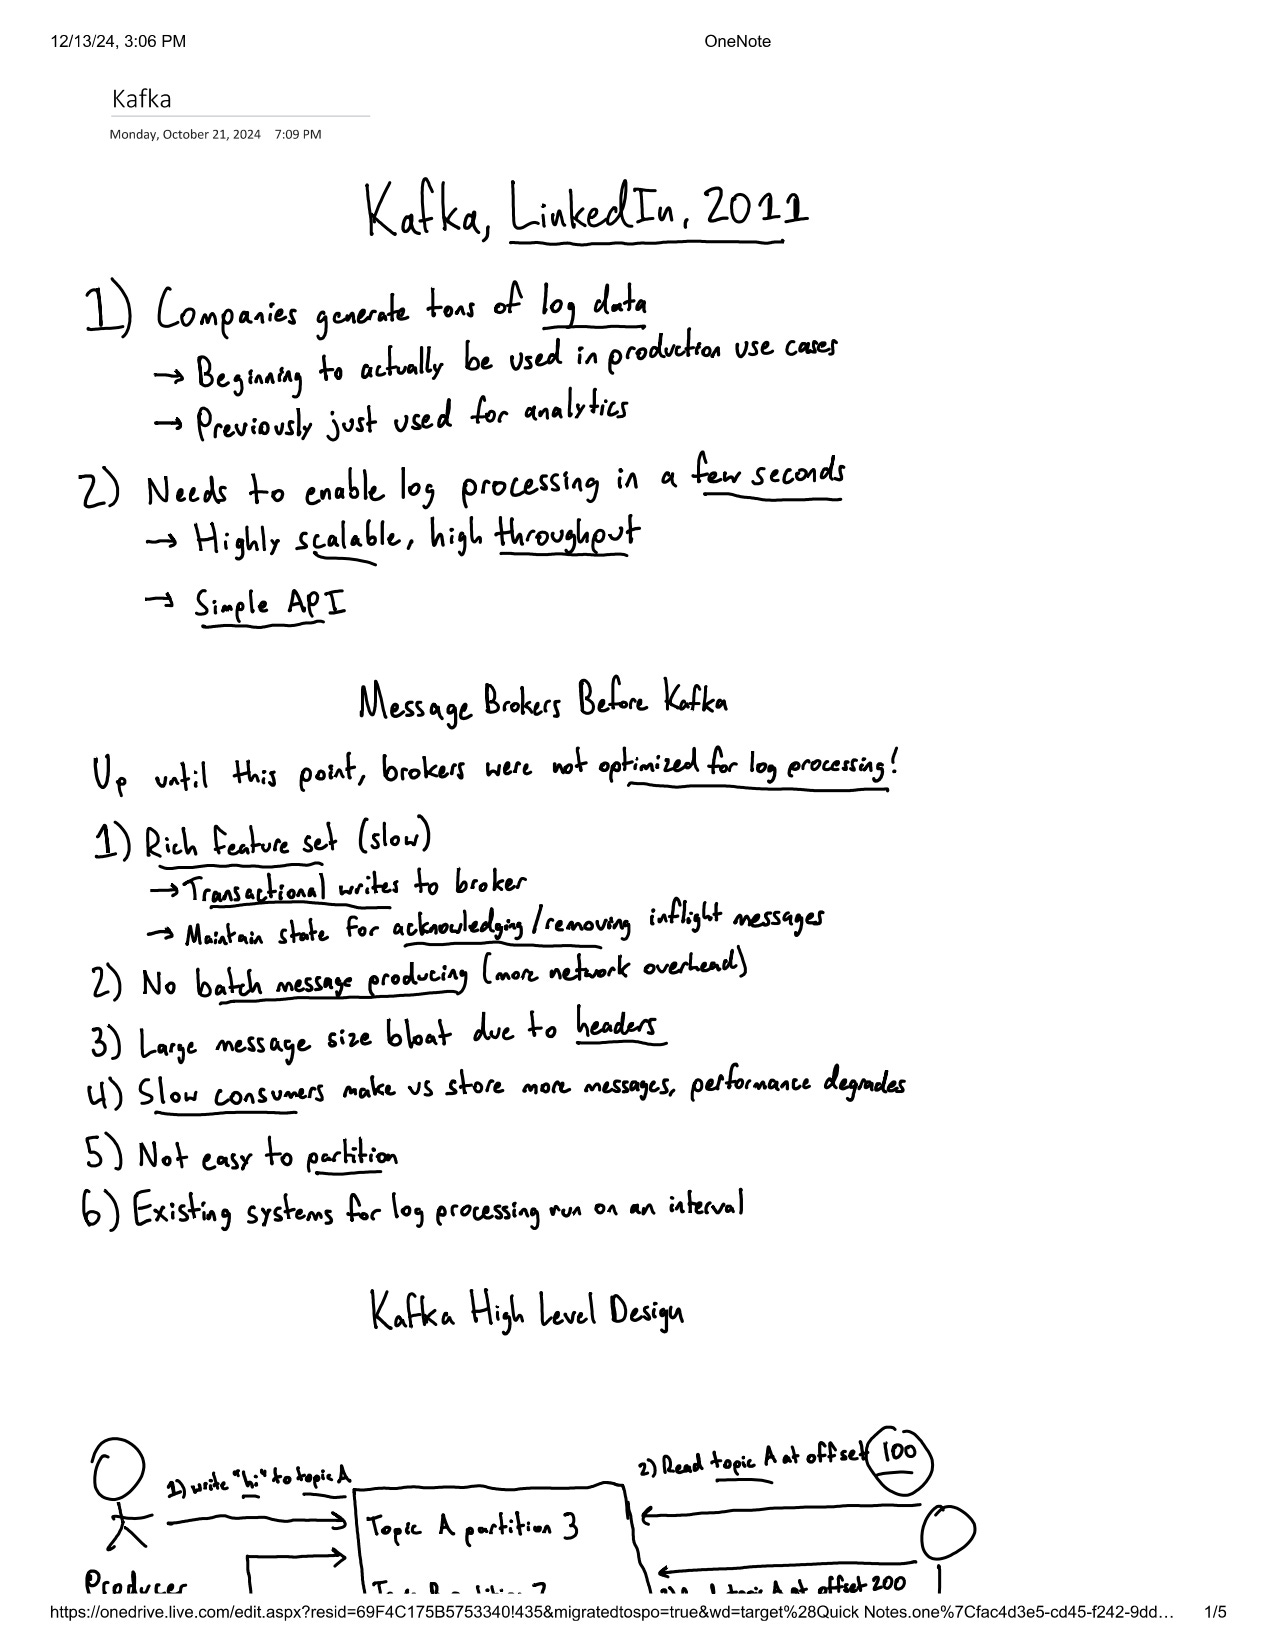 12/13/24, 3:06 PM OneNote
Kafka
Monday, October 21, 2024 7:09 PM
Kafka, LinkedIn, 2011
1) Companies generate tons of log data
→ Beginning to actually be used in production use cases
→ Previously just used for analytics
2) Needs to enable log processing in a few seconds
→ Highly scalable, high throughput
→ Simple API
Message Brokers Before Kafka
Up until this point, brokers were not optimized for log processing!
1) Rich feature set (slow)
→ Transactional writes to broker
→ Maintain state for acknowledging/removing inflight messages
2) No batch message producing (more network overhead)
3) Large message size bloat due to headers
4) Slow consumers make us store more messages, performance degrades
5) Not easy to partition
6) Existing systems for log processing run on an interval
Kafka High Level Design
2) Read topic A at offset 100
1) write "hi" to topic A
Topic A partition 3
Producer
topic A at offset 200
https://onedrive.live.com/edit.aspx?resid=69F4C175B5753340!435&migratedtospo=true&wd=target%28Quick Notes.one%7Cfac4d3e5-cd45-f242-9dd… 1/5